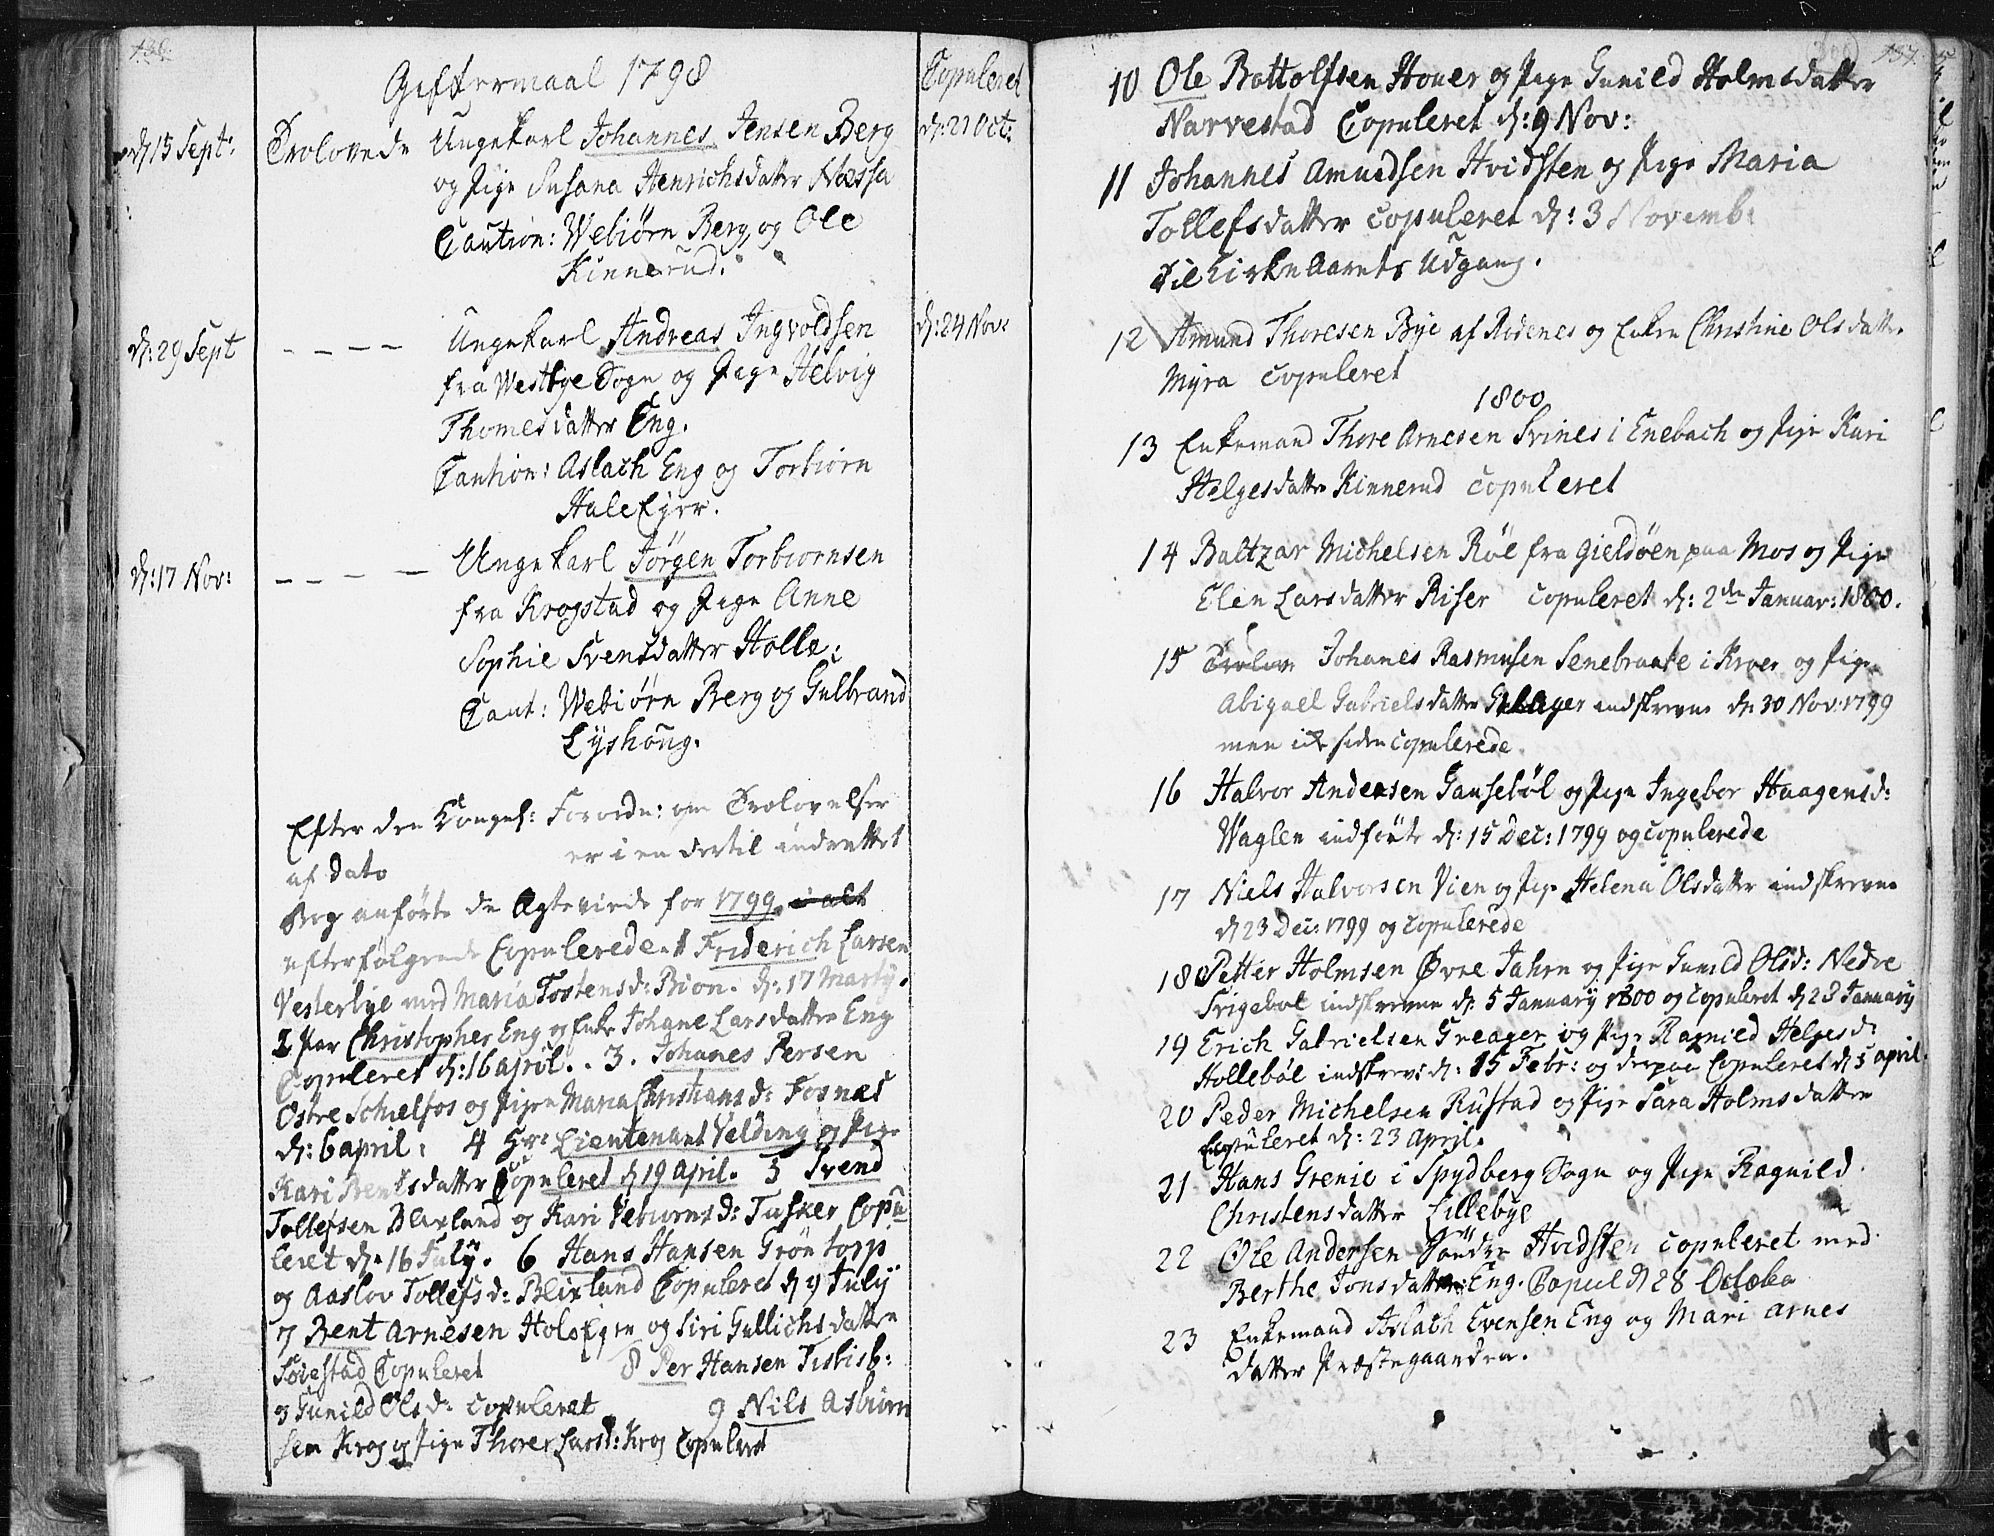 136.
Giftermaal 1798
Copuleret
d: 15 Sept: Trolovede Ungekarl Johannes Jensen Berg d: 21 Oct:
og Pige Susana Henrichsdatter Næssa
Caution: Webiørn Berg og Ole
Kinnerud.
d: 29 Sept - - - - Ungekarl Andreas Ingvoldsen d: 24 Nov:
fra Westbye Sogn og Pige Helvig
Thomesdatter Eng.
Caution: Aslach Eng og Torbiørn
Hale Eyer.
d: 17 Nov: - - - - Ungekarl Jörgen Torbiornsen
fra Krogstad og Pige Anne
Sophie Svensdatter Holle:
Caut: Webiörn Berg og Gulbrand
Lyshoug.
Efter den Kongel: Forordn: om Trolovelser
af dato er i en dertil indrettet
Bog anførte de Ægteviede for 1799. i alt
efterfølgende Copulerede. 1 Friderich Larsen
Vesterbye med Maria Tostensd: Bion. d: 17 Marty.
2 Par Christopher Eng og Enke Johane Larsdatter Eng
Copuleret d: 16 april. . 3. Johanes Persen
Ostre Schielfos og Pigen Maria Christiansd: Fosnæs
d: 6 april: 4 Hr: Lieutenant Velding og Pige
Kari Bentsdatter Copuleret d 19 April. 5 Svend
Tollefsen Blexland og Kari Vebiornsd: Tusker Copu
leret d: 16 July. 6 Hans Hansen Gröntorp
og Aaslov Tollefsd: Blixland Copuleret d 9 July
7 Bent Arnesen Hol Eyer og Siri Gullichsdatter
Soiestad Copuleret 8 Per Hansen
Gunild Olsd: copuleret 9 Nils Asbiørn
sen Krog og Pige Thorer Larsd: Krog Copuleret
137.
10 Ole Bottolfsen Houer og Pige Gunild Holmsdatter
Narvestad Copuleret d: 9 Nov:
11 Johannes Amundsen Hvidsten og Pige Maria
Tollefsdatter copuleret d: 3 Novemb:
Til Kirke Aarets Udgang.
12 Amund Thoresen Bye af Rödenes og Enke Christine Olsdatter
Myra copuleret
1800
13 Enkemand Thore Arnesen Svines i Enebach og Pige Kari
Helgesdatter Kinnerud copuleret
14 Baltzar Michelsen Röe fra Gieldöen paa Mos og Pige
Elen Larsdatter Riser copuleret d: 2den Januar: 1800.
15 Trolov Johanes Rasmusen Senebraate i Kroer og Pige
Abigael Gabrielsdatter indskrevne d: 30 Nov: 1799
men ik siden copulerede
16 Halvor Andersen Gauseböl og Pige Ingebor Haagensd:
Waglen indførte d: 15 Dec: 1799 og copulerede
17 Niels Halvorsen Vien og Pige Helena Olsdatter indskrevne
d 23 Dec: 1799 og copulerede
18 Petter Holmsen Øvre Jahren og Pige Gunild Olsd: Nedre
Frigebol indskrevne d: 5 January 1800 og copuleret d 23 January
19 Erich Gabrielsen Greager og Pige Ragnild Helgesd:
Holleböl indskrev: d: 15 Febr: og derpaa Copuleret d 5 april.
20 Peder Michelsen Rustad og Pige Sara Holmsdatter
Copuleret d: 23 April.
21 Hans Grenie i Spydberg Sogn og Pige Ragnild
Christensdatter Lillebye
22 Ole Andersen Söndre Hvidsten copuleret med
Berthe Jonsdatter Eng. Copul d 28 Octobe
23 Enkemand Aslach Evensen Eng og Mari Arnes
datter Præstegaarden.